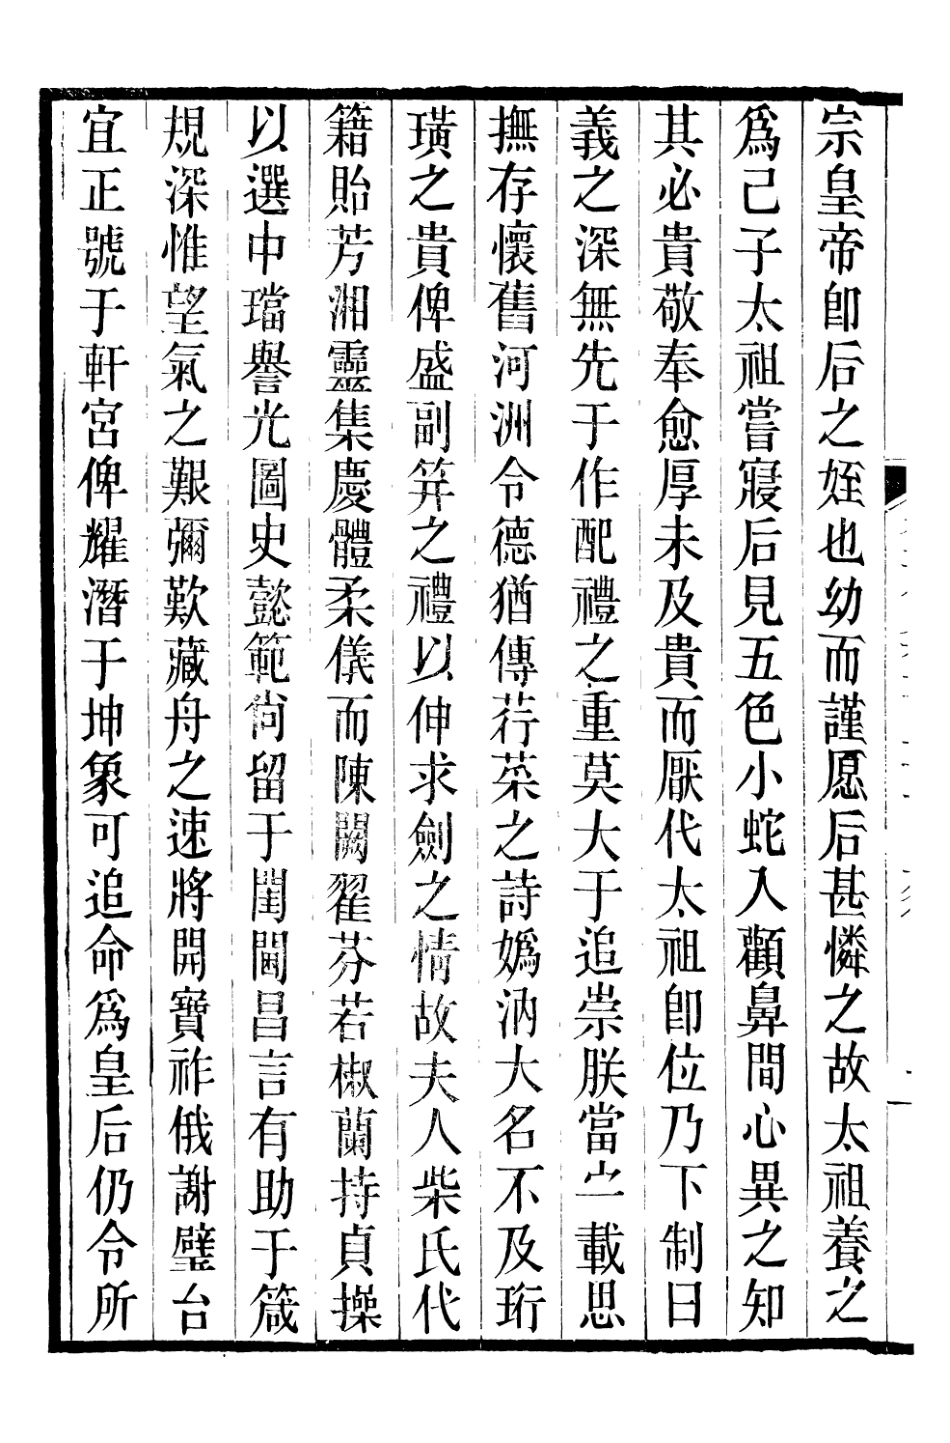 宗皇帝卽后之姪也幼而謹愿后甚憐之故太祖養之
爲己子太祖嘗寢后見五色小蛇入顴鼻間心異之知
其必貴敬奉愈厚未及貴而厭代太祖卽位乃下制曰
義之深無先于作配禮之重莫大于追崇朕當載思
撫存懷舊河洲令德猶傳荇菜之詩嬀汭大名不及珩
璜之貴俾盛副筓之禮以伸求劍之情故夫人柴氏代
籍貽芳湘靈集慶體柔儀而陳闕翟芬若椒蘭持貞操
以選中璫譽光圖史懿範尙留于閨閫昌言有助于箴
規深惟望氣之艱彌歎藏舟之速將開寶祚俄謝璧台
宜正號于軒宮俾耀潛于坤象可追命爲皇后仍令所